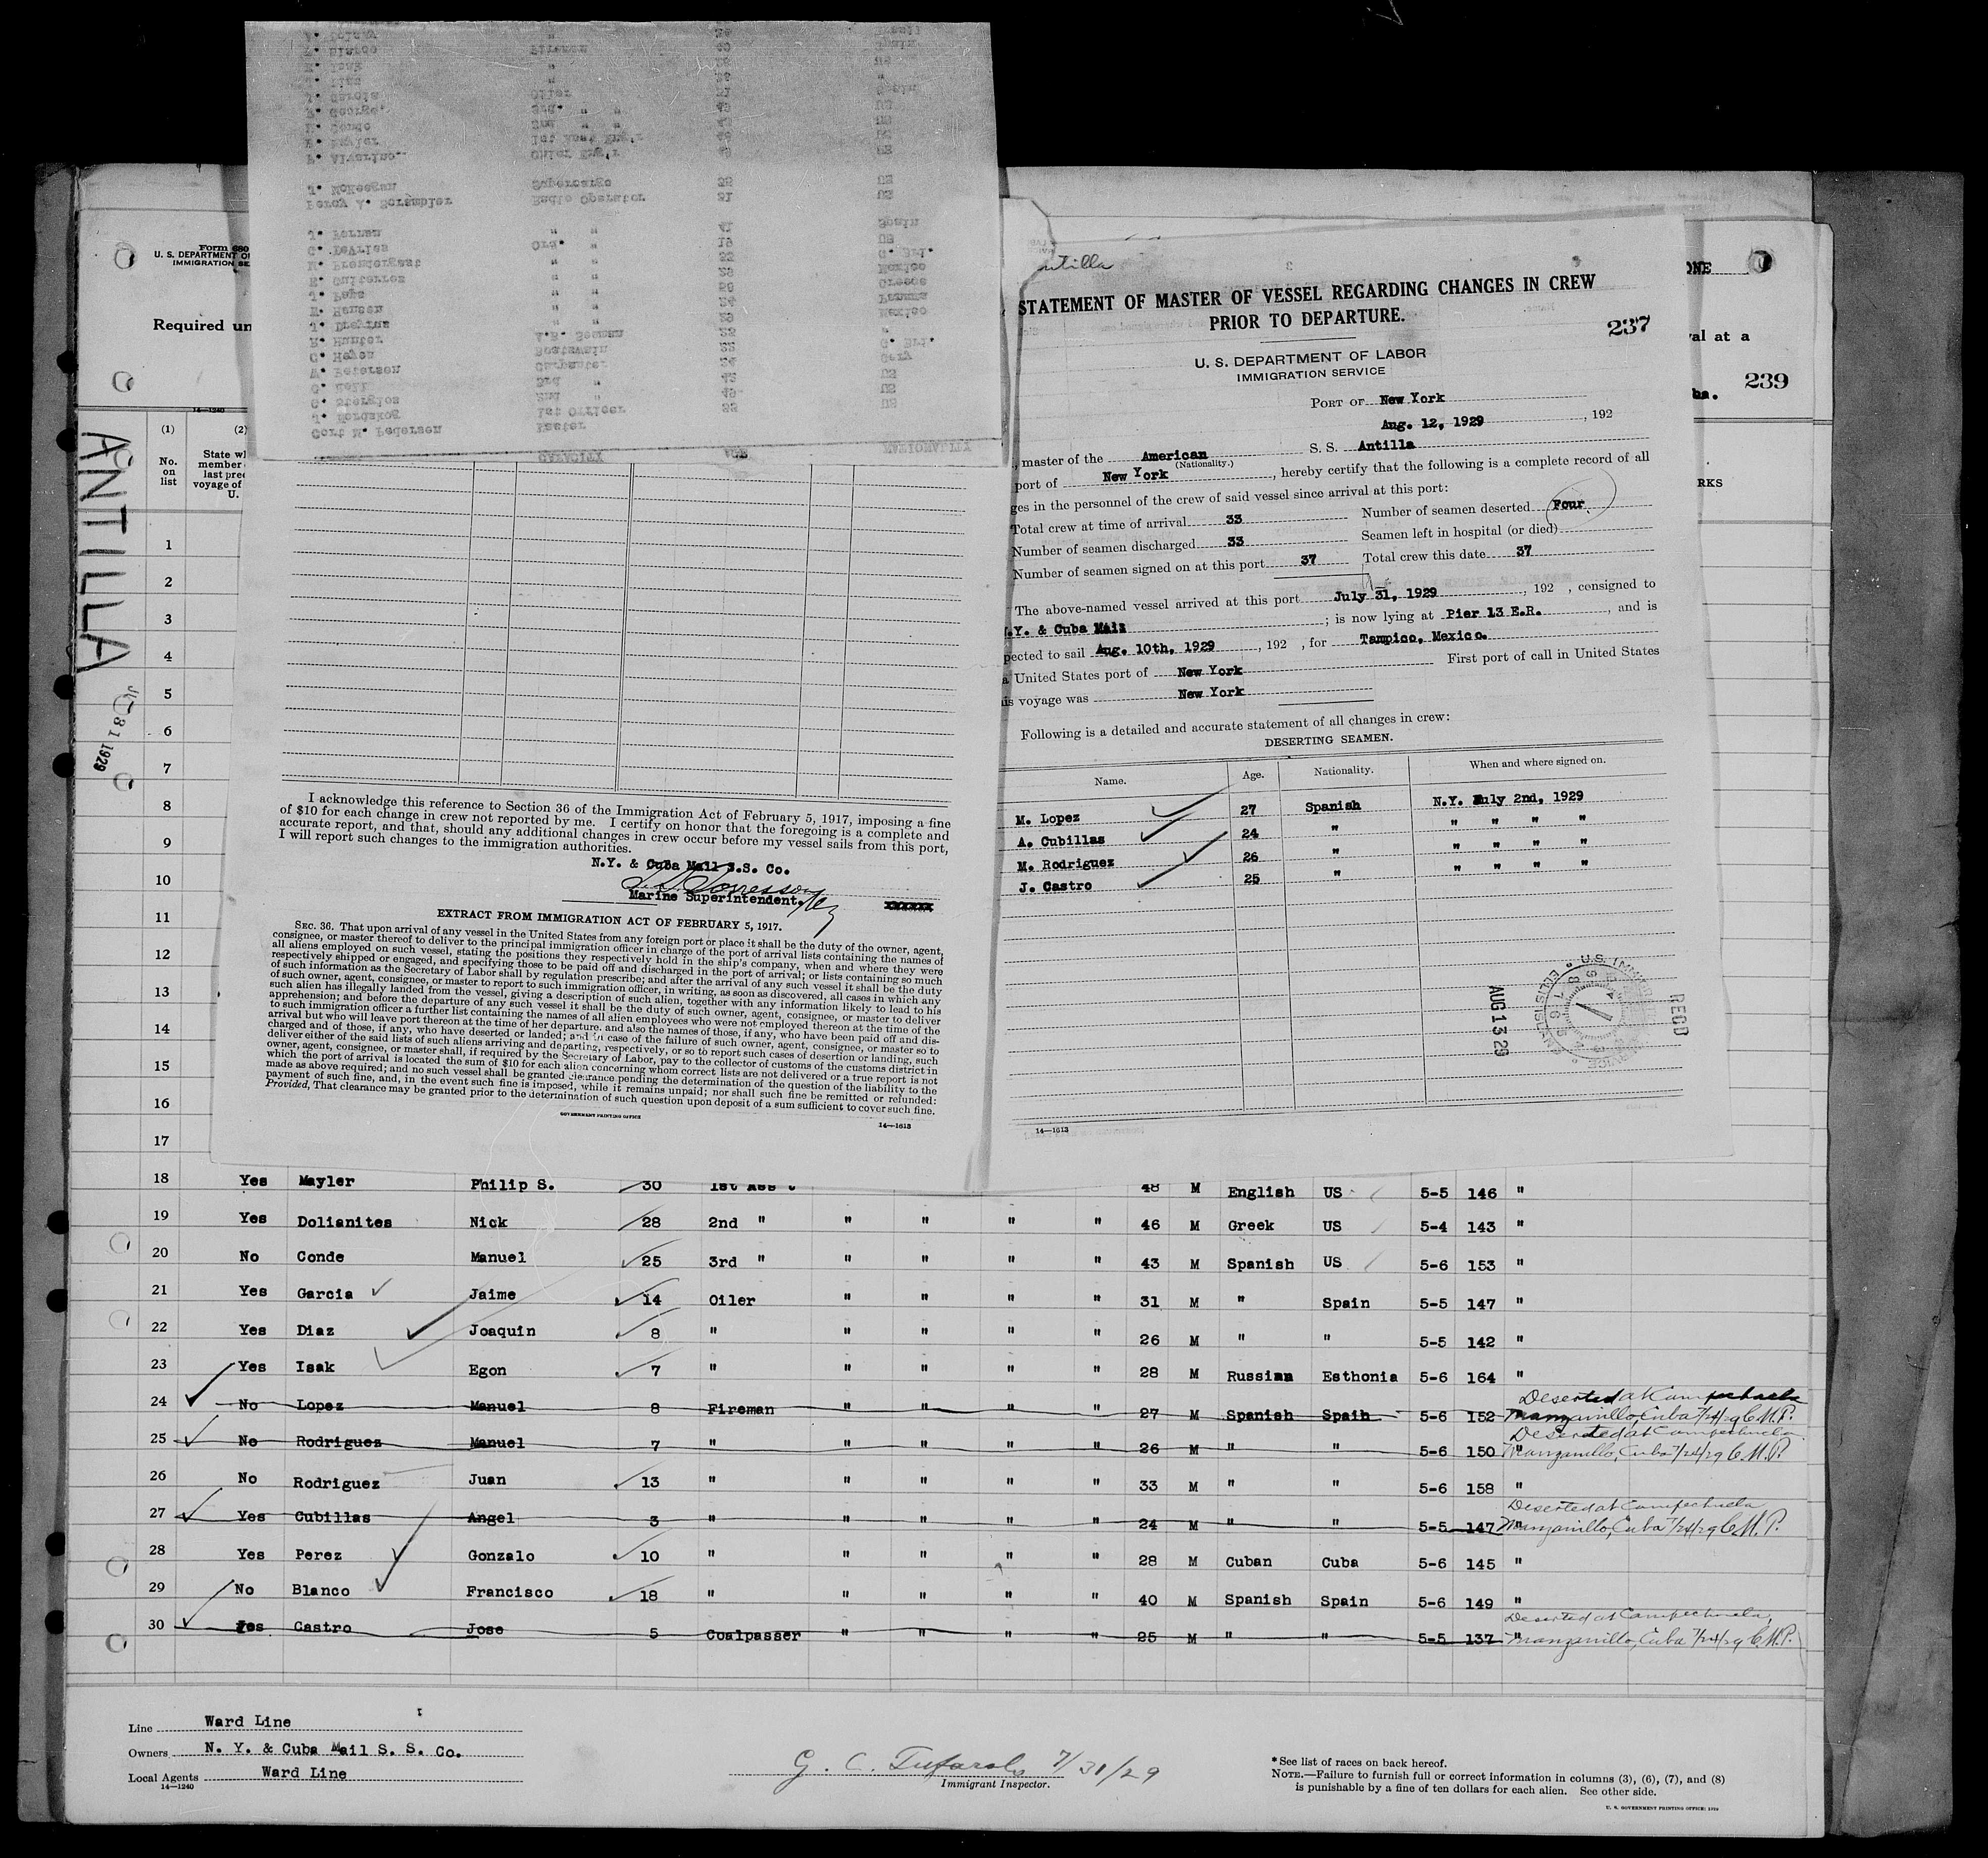 Cort M. Pedersen Master
J. Nordskog 1st Officer 33 US
G. Sterglos 2nd " 49 US
G. Kell 3rd " 42 US
W. Petersen Carpenter 24 Gery
C. Hayen Boatswain 22 G. Bri.
R. Hunter A.B. Seaman
H. Hansen " "
J. Pays " " 50 Greece
E. Gutierrez " " 29 Mexico
M. Prendergast " " 22 G. Bri.
C. DeVries Ord. " 19 US
J. Fernan " " 41 Spain
Percy V. Scrambler Radio Operator 21 US
J. McKeegan Supercargo 35 US
F. Alvarino Chief Eng'r
P. Mayler 1st Asst Eng'r 48 US
M. Conde 2nd " " 43 US
F. George 3rd " " 49 US
J. Garcia Oiler 31 Spain
J. Diaz " 26 "
E. Isak " 28
F. Blanco Fireman 40 Spain
CAPACITY AGE NATIONALITY
Form 680
U. S. DEPARTMENT O
IMMIGRATION SE
Required un
14—1240
ANTILLA
1929
(1) (2)
No. on list
State wh
member
last prec
voyage of
U.
1
2
3
4
5
6
7
8
9
10
11
12
13
14
15
16
17
I acknowledge this reference to Section 36 of the Immigration Act of February 5, 1917, imposing a fine
of $10 for each change in crew not reported by me. I certify on honor that the foregoing is a complete and
accurate report, and that, should any additional changes in crew occur before my vessel sails from this port,
I will report such changes to the immigration authorities.
N.Y. & Cuba Mail S.S. Co.
Marine Superintendent.
xxxxxx
EXTRACT FROM IMMIGRATION ACT OF FEBRUARY 5, 1917.
SEC. 36. That upon arrival of any vessel in the United States from any foreign port or place it shall be the duty of the owner, agent,
consignee, or master thereof to deliver to the principal immigration officer in charge of the port of arrival lists containing the names of
all aliens employed on such vessel, stating the positions they respectively hold in the ship's company, when and where they were
respectively shipped or engaged, and specifying those to be paid off and discharged in the port of arrival; or lists containing so much
of such information as the Secretary of Labor shall by regulation prescribe; and after the arrival of any such vessel it shall be the duty
of such owner, agent, consignee, or master to report to such immigration officer, in writing, as soon as discovered, all cases in which any
such alien has illegally landed from the vessel, giving a description of such alien, together with any information likely to lead to his
apprehension; and before the departure of any such vessel it shall be the duty of such owner, agent, consignee, or master to deliver
to such immigration officer a further list containing the names of all alien employees who were not employed thereon at the time of the
arrival but who will leave port thereon at the time of her departure, and also the names of those, if any, who have been paid off and dis-
charged and of those, if any, who have deserted or landed; and in case of the failure of such owner, agent, consignee, or master so to
deliver either of the said lists of such aliens arriving and departing, respectively, or so to report such cases of desertion or landing, such
owner, agent, consignee, or master shall, if required by the Secretary of Labor, pay to the collector of customs of the customs district in
which the port of arrival is located the sum of $10 for each alien concerning whom correct lists are not delivered or a true report is not
made as above required; and no such vessel shall be granted clearance pending the determination of the question of the liability to the
payment of such fine, and, in the event such fine is imposed, while it remains unpaid; nor shall such fine be remitted or refunded:
Provided, That clearance may be granted prior to the determination of such question upon deposit of a sum sufficient to cover such fine.
GOVERNMENT PRINTING OFFICE
14—1613
ntilla
STATEMENT OF MASTER OF VESSEL REGARDING CHANGES IN CREW
PRIOR TO DEPARTURE.
237
U. S. DEPARTMENT OF LABOR
IMMIGRATION SERVICE
PORT OF New York
Aug. 12, 1929, 192
, master of the American S. S. Antilla
(Nationality.)
port of New York, hereby certify that the following is a complete record of all
ges in the personnel of the crew of said vessel since arrival at this port:
Total crew at time of arrival 33 Number of seamen deserted Four
Number of seamen discharged 33 Seamen left in hospital (or died)
Number of seamen signed on at this port 37 Total crew this date 37
The above-named vessel arrived at this port July 31, 1929, 192 , consigned to
.Y. & Cuba Mail ; is now lying at Pier 13 E.R. , and is
pected to sail Aug. 10th, 1929, 192 , for Tampico, Mexico.
a United States port of New York First port of call in United States
is voyage was New York
Following is a detailed and accurate statement of all changes in crew:
DESERTING SEAMEN.
Name. Age. Nationality. When and where signed on.
M. Lopez 27 Spanish N.Y. July 2nd, 1929
A. Cubillas 24 " " " " "
M. Rodriguez 26 " " " " "
J. Castro 25 " " " " "
AUG 13 29
RECD
U.S. IMMIG
14—1613
ONE
val at a
239
ba.
RKS
18 Yes Mayler Philip S. 30 1st Ass't 48 M English US 5-5 146 "
19 Yes Dolianites Nick 28 2nd " " " " " 46 M Greek US 5-4 143 "
20 No Conde Manuel 25 3rd " " " " " 43 M Spanish US 5-6 153 "
21 Yes Garcia Jaime 14 Oiler " " " " 31 M " Spain 5-5 147 "
22 Yes Diaz Joaquin 8 " " " " " 26 M " " 5-5 142 "
23 Yes Isak Egon 7 " " " " " 28 M Russian Esthonia 5-6 164 "
24 No Lopez Manuel 8 Fireman " " " " 27 M Spanish Spain 5-6 152 Deserted at Campechuela
Manzanillo, Cuba 7/24/29 C.M.P.
25 No Rodriguez Manuel 7 " " " " " 26 M " " 5-6 150 " Deserted at Campechuela
Manzanillo, Cuba 7/24/29 C.M.P.
26 No Rodriguez Juan 13 " " " " " 33 M " " 5-6 158 "
27 Yes Cubillas Angel 3 " " " " " 24 M " " 5-5 147 " Deserted at Campechuela
Manzanillo, Cuba 7/24/29 C.M.P.
28 Yes Perez Gonzalo 10 " " " " " 28 M Cuban Cuba 5-6 145 "
29 No Blanco Francisco 18 " " " " " 40 M Spanish Spain 5-6 149 "
30 Yes Castro Jose 5 Coalpasser " " " " 25 M " " 5-5 137 " Deserted at Campechuela,
Manzanillo, Cuba 7/24/29 C.M.P.
Line Ward Line
Owners N. Y. & Cuba Mail S. S. Co.
Local Agents Ward Line
14—1240
G. C. 7/31/29
Immigrant Inspector.
*See list of races on back hereof.
NOTE.—Failure to furnish full or correct information in columns (3), (6), (7), and (8)
is punishable by a fine of ten dollars for each alien. See other side.
U. S. GOVERNMENT PRINTING OFFICE: 1929